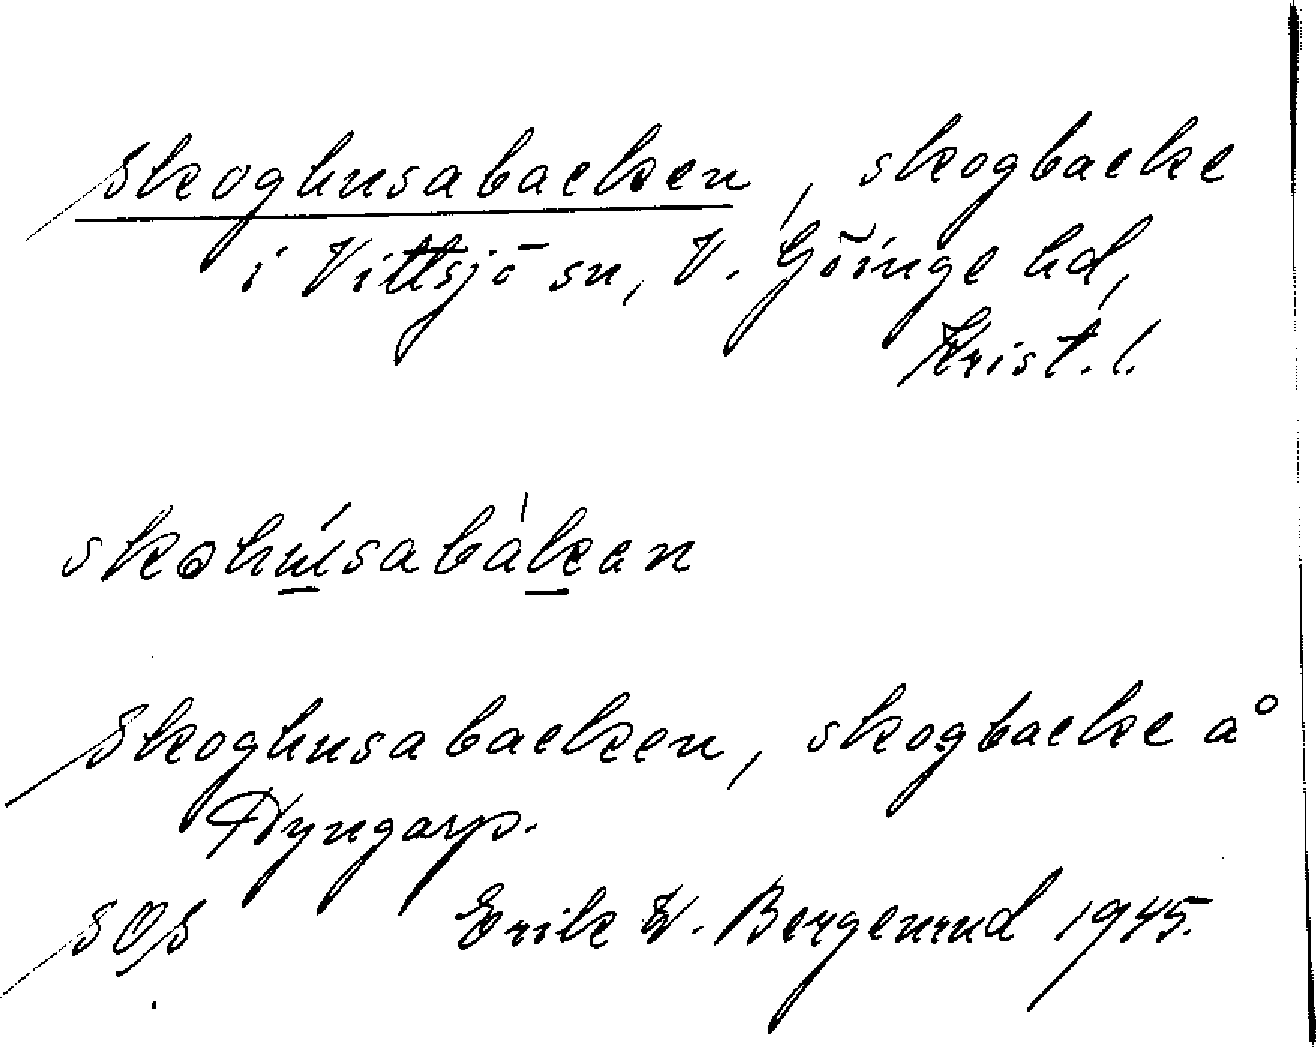 Skoghusabacken, skogbacke
i Vittsjö sn, V. Göinge hd,
Krist. l.
skohúsabàkan
Skoghusabacken, skogbacke å
Hyngarp.
SOS Erik W. Bergenrud 1945.